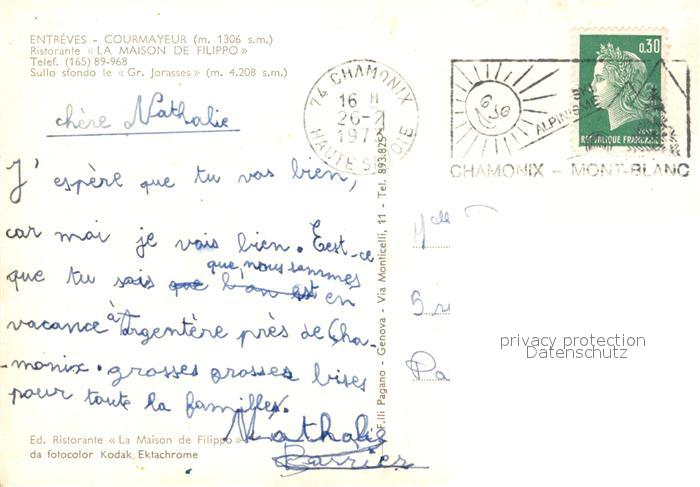 ENTRÈVES - COURMAYEUR (m. 1306 s.m.)
Ristorante « LA MAISON DE FILIPPO »
Telef. (165) 89-968
Sullo sfondo le « Gr. Jorasses » (m. 4.208 s.m.)
chère Nathalie
J'espère que tu vas bien,
car moi je vais bien. Eest-ce
que tu sais que l'on est que nous sommes en
vacance à Argentère près de Cha-
-monix. grosses grosses bises
pour toute la famille.
Nathalie
Barrier
Ed. Ristorante « La Maison de Filippo »
da fotocolor Kodak Ektachrome
F.lli Pagano - Genova - Via Monticelli, 11 - Tel. 893.825
74 CHAMONIX
16 H
26-2
HAUTE SAVOIE
0,30
REPUBLIQUE FRANÇAISE
SKI
ALPINISME
CHAMONIX - MONT-BLANC
Melle
5 
Pa
privacy protection
Datenschutz